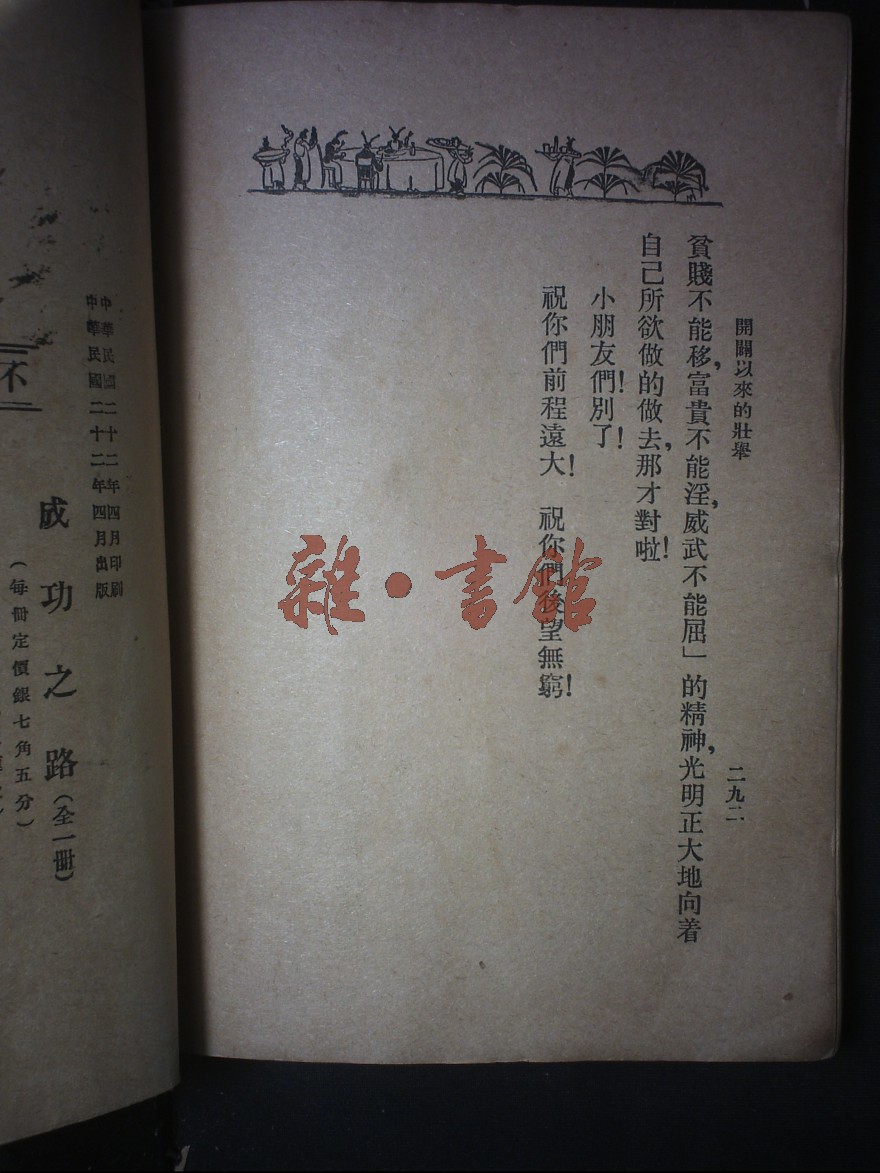 開闢以來的壯舉
二九二
貧賤不能移,富貴不能淫,威武不能屈」的精神,光明正大地向着
自己所欲做的做去,那才對啦!
小朋友們!別了!
祝你們前程遠大! 祝你們後望無窮!
雜·書館
中華民國二十二年四月印刷
中華民國二十二年四月出版
成功之路(全一冊)
(每冊定價銀七角五分)
不